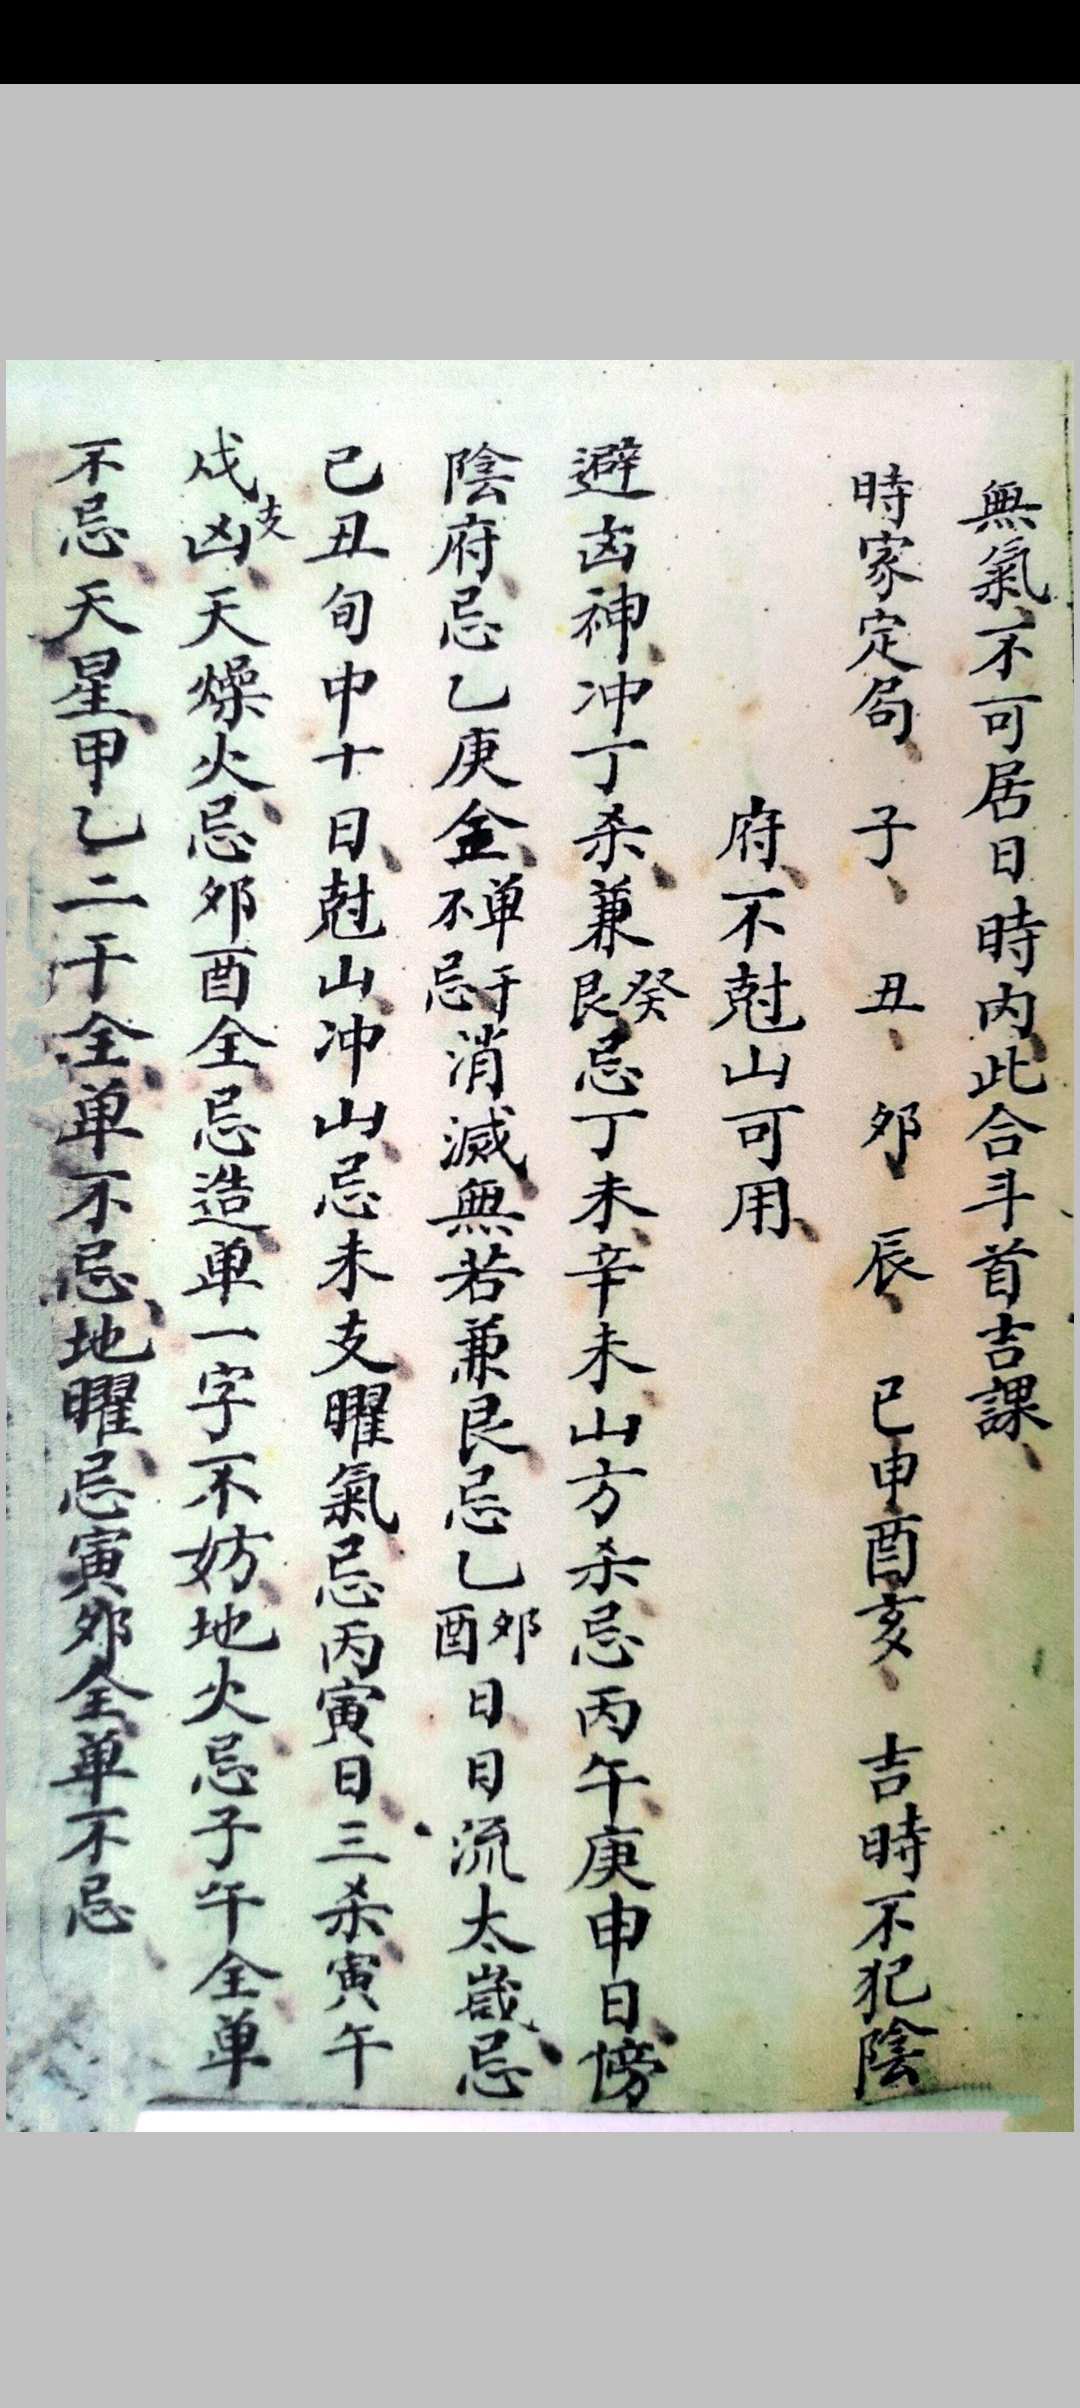 無氣、不可居日時内、此合斗首吉課、
時家定局、子、丑、夘、辰、巳申酉亥、吉時不犯陰
府、不尅山可用、
避凶神、冲丁杀、兼癸艮忌丁未、辛未、山方杀忌丙午、庚申日、傍
陰府、忌乙庚金、单干不忌消滅、無若兼艮、忌乙夘酉日、日流太歲、忌
己丑旬中十日、尅山、冲山、忌未支、曜氣、忌丙寅日、三杀、寅午
戌支凶、天燥火、忌夘酉全、忌造、单一字不妨、地火、忌子午全、单
不忌、天星、甲乙二干全、单不忌、地曜、忌寅夘全、单不忌、